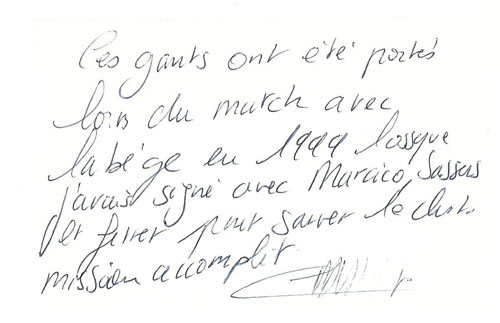 Ces gants ont été portés
lors du match avec
labége en 1999 losque
j'avais signé avec Maraico, Sassus
et ferrer pour sauver le club.
mission accomplit